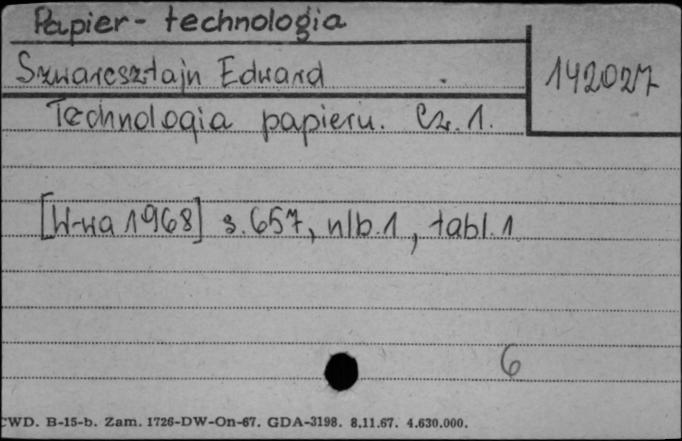 Papier- technologia
Szwarcsztajn Edward
142027
Technologia papieru. Cz. 1.
[W-wa 1968] s. 657, nlb. 1, tabl. 1
6
CWD. B-15-b. Zam. 1726-DW-On-67. GDA-3198. 8.11.67. 4.630.000.